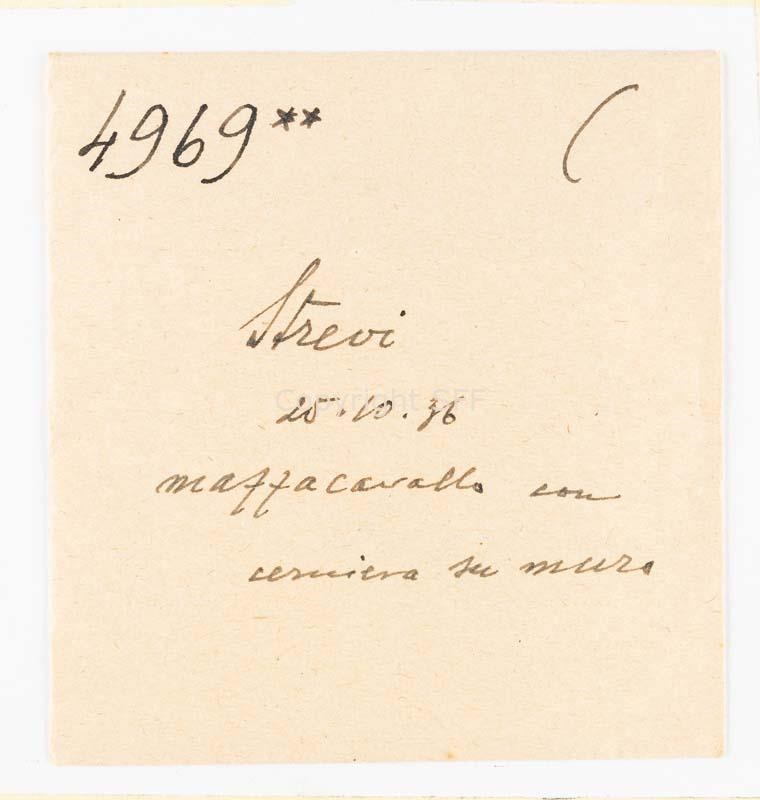 4969** (
Strevi
25.10.36
maffacavallo con
cerniera su muro
Copyright SFF